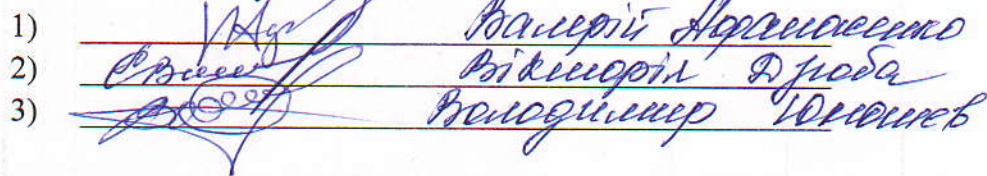 1) Валерій Афанасенко
2) Вікторія Дроба
3) Володимир Юношев